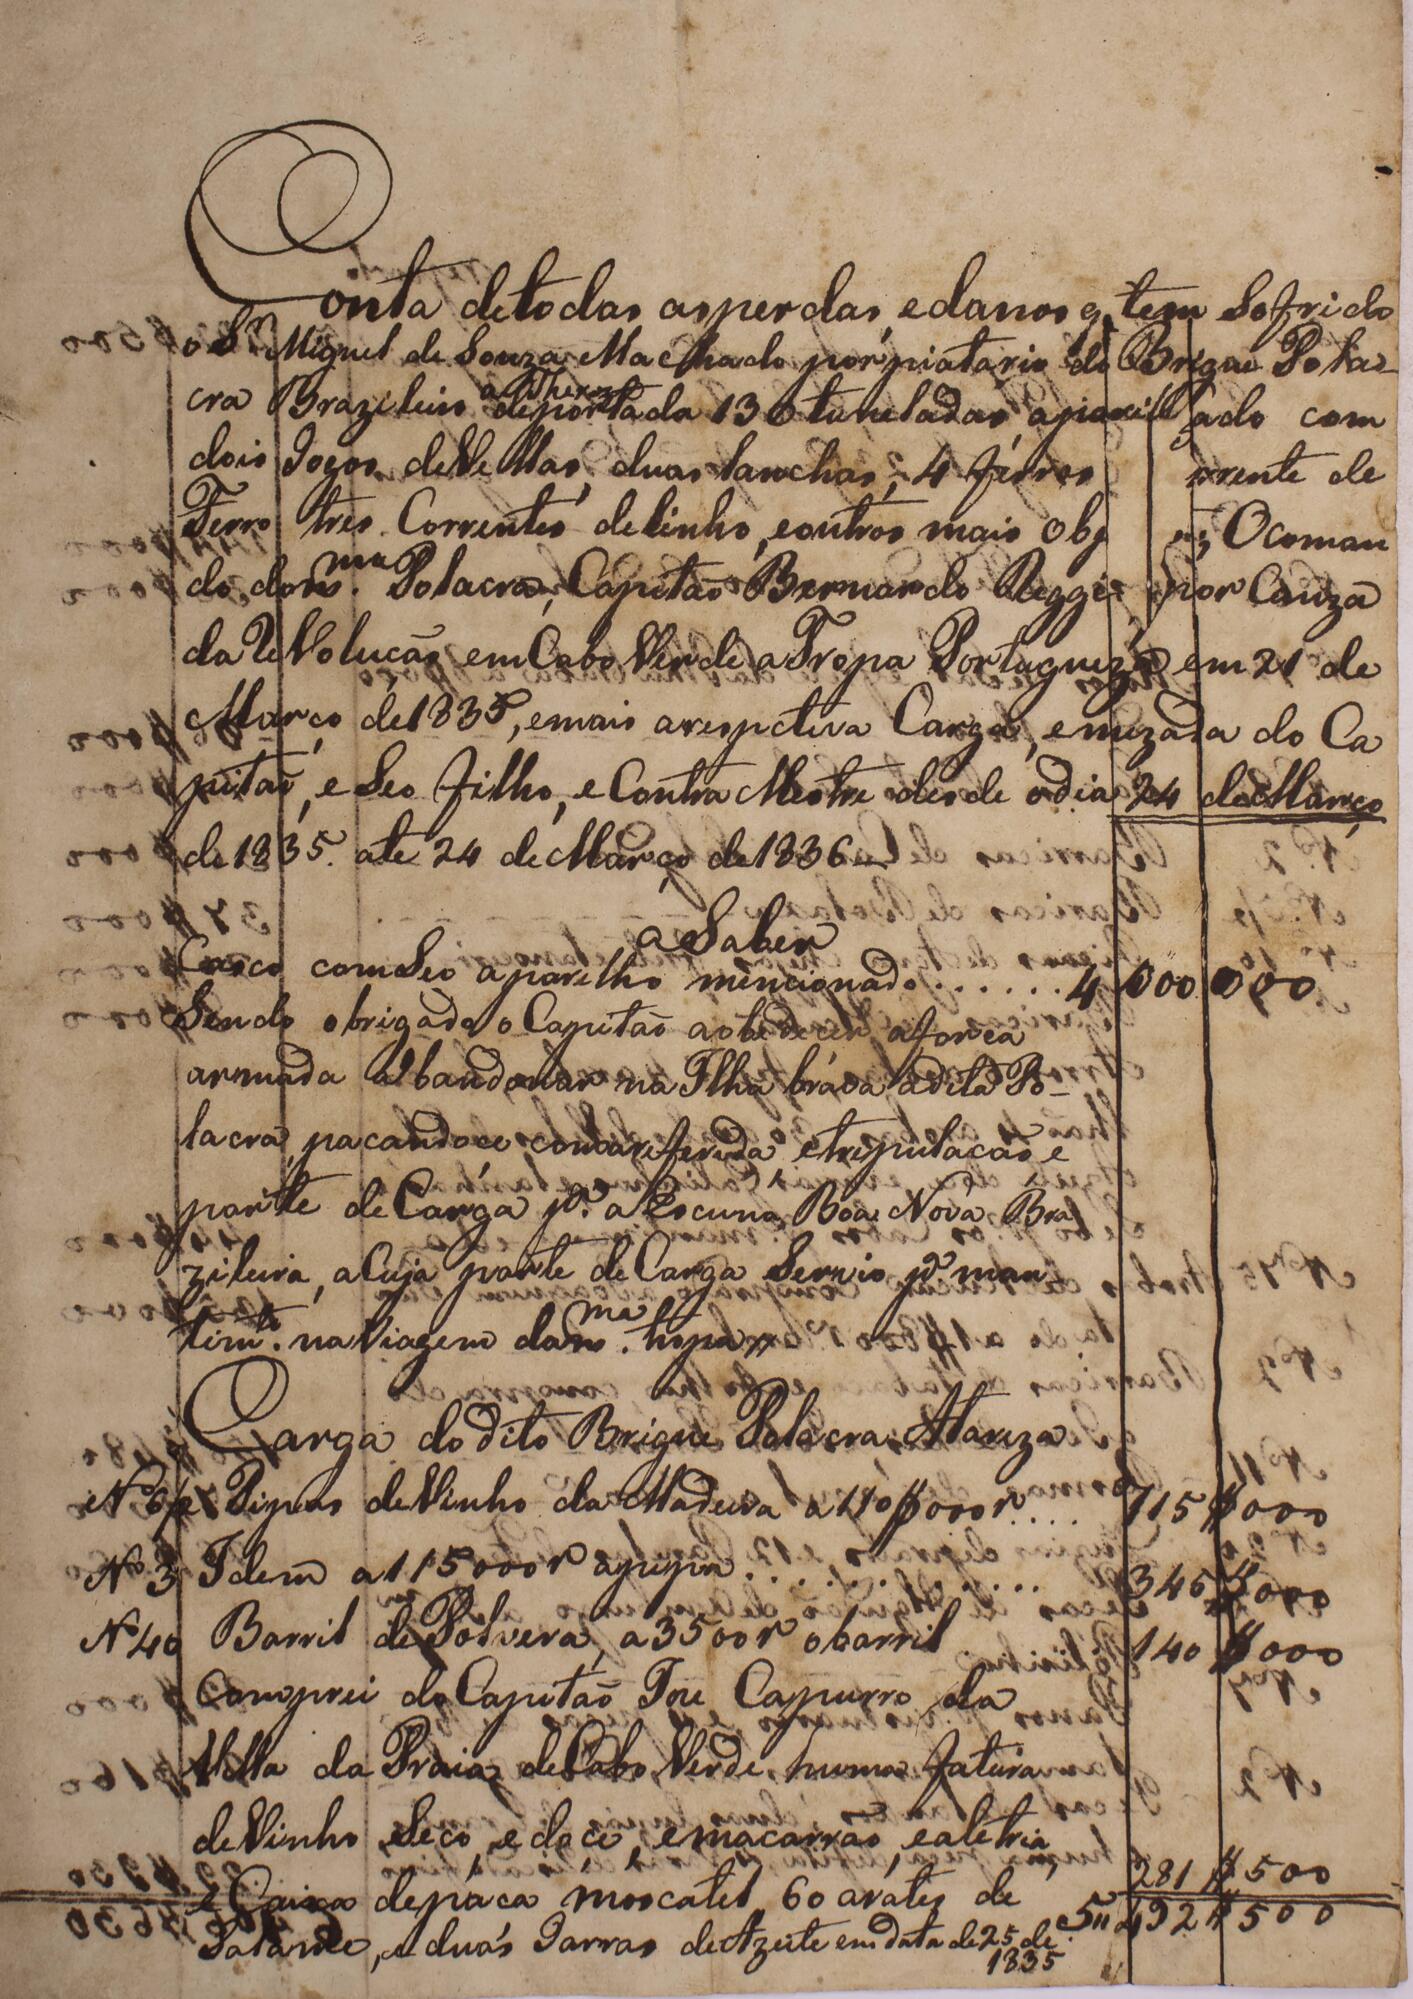 Conta de todas as perdas, e danos q. tem Sofrido
o Snr. Miguel de Souza Machado porpiatario do Brigue Polac-
cra Brazileiro deportada 136 tuneladas apareilhado com
dois Jogos de Vellas, duas lanchas, 4 ferros rrente de
Ferro tres Correntes de linho, e outros mais Obj os, O coman
do da m.ma Polacra, Capitaõ Bernardo Reggio por Cauza
da Revoluçaõ em Cabo Verde a Tropa Portugueza em 21 de
Março de 1835, e mais a respectiva Carga, e muzada do Ca
pitaõ, e Seo filho, e Contra Mestre desde o dia 24 de Março
de 1835. ate 24 de Março de 1836
a Saber
Casco com Seo aparelho mencionado . . . . . . 4 000 000
Sendo obrigado o Capitaõ a obedecer a força
armada abandonar na Ilha brava a dita Po-
lacra, paçandoce com a referida e tripulaçaõ e
parte de Carga pa. a Escuna Boa Nova Bra
zileira, a Cuja parte de Carga Servio pa. man
timto. na Viagem da m.ma tropa
Carga do dito Brigue Polacra Atareza
No 6½ Pipas de Vinho da Madeira a 110$000 r. . . . 715$000
No 3 Idem a 115000 r a pipa . . . . . . 345$000
No 40 Barril de Polvera, a 3500 r o barril 140$000
Comprei do Capitaõ Joze Capurro da
Villa da Praia de Cabo Verde huma fatura
de Vinho Seco, e doce, e macarraõ, e aletria,
e Caixa de paça moscatel 60 arates de 281$500
Salame, e duas Jarras de Azeite em data de 25 de 5"492$500
1835